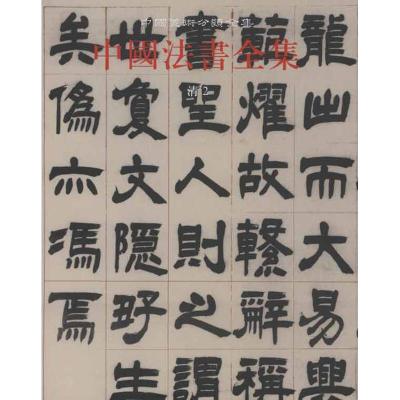 中國美術分類全集
中國法書全集
清 2
龍出而大易興
範燿故繫辭稱
書聖人則之謂
世夐文隱好生
矣偽亦馮焉